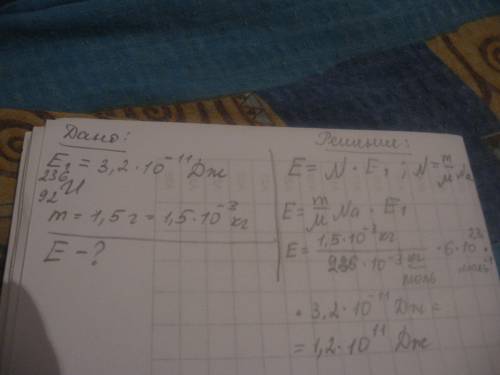 Дано:
E₁ = 3,2·10⁻¹¹ Дж
²³⁶₉₂U
m = 1,5 г = 1,5·10⁻³ кг
E - ?
Решение:
E = N · E₁ ; N = m/M Na
E = m/M Na · E₁
E = 1,5·10⁻³ кг / 236·10⁻³ кг/моль · 6·10²³ моль⁻¹ ·
· 3,2·10⁻¹¹ Дж =
= 1,2·10¹¹ Дж